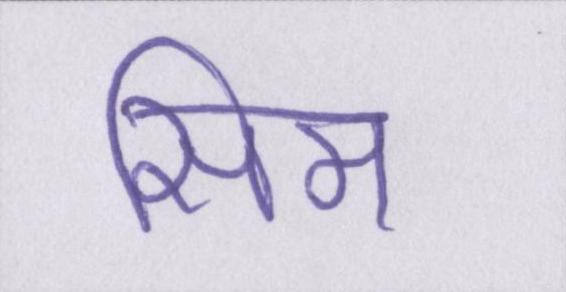 सिम